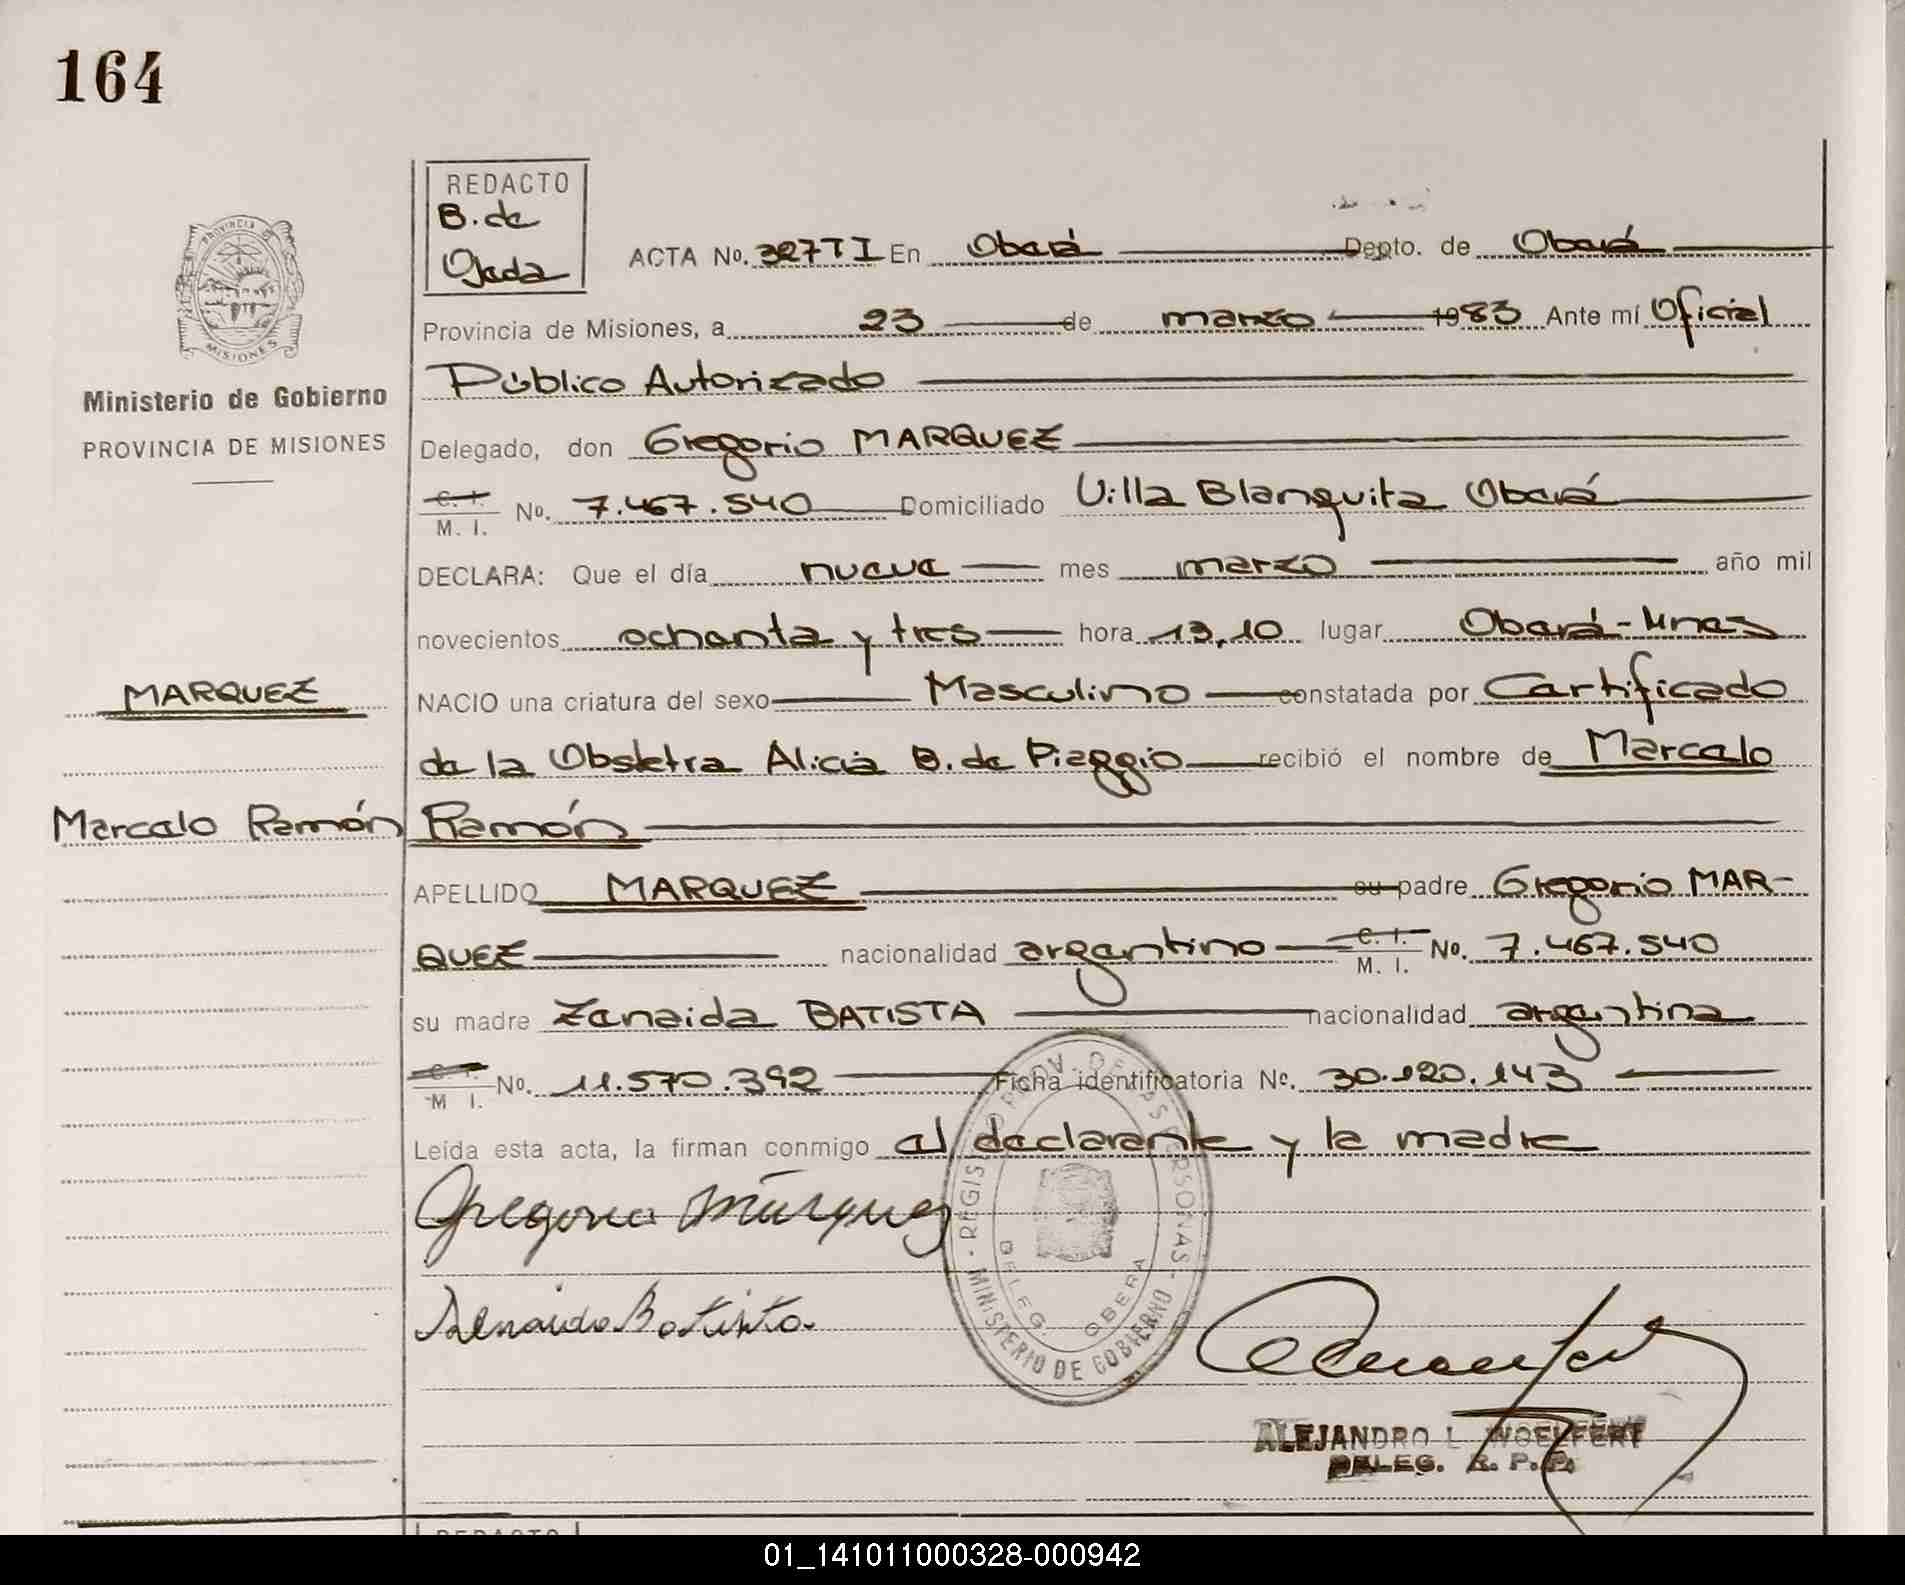 164
REDACTO
B. de
Ojeda
ACTA No. 327 T I En Oberá Depto. de Oberá
Provincia de Misiones, a 23 de marzo 1983 Ante mí Oficial
Público Autorizado
Delegado, don Gregorio MARQUEZ
C. I.
M. I. No. 7.467.540 Domiciliado Villa Blanquita Oberá
DECLARA: Que el día nueve mes marzo año mil
novecientos ochenta y tres hora 13,10 lugar Oberá-Mnes
NACIO una criatura del sexo Masculino constatada por Certificado
de la Obstetra Alicia B. de Piaggio recibió el nombre de Marcelo
Ramón
APELLIDO MARQUEZ su padre Gregorio MAR-
QUEZ nacionalidad argentino C. I.
M. I. No. 7.467.540
su madre Zenaida BATISTA nacionalidad argentina
C. I.
M I. No. 11.570.392 Ficha identificatoria No. 30.120.143
Leída esta acta, la firman conmigo el declarante y la madre
Gregorio Márquez
Batista
PROVINCIA
MISIONES
Ministerio de Gobierno
PROVINCIA DE MISIONES
MARQUEZ
Marcelo Ramón
REGISTRO PROV. DE LAS PERSONAS
MINISTERIO DE GOBIERNO
DELEG. OBERA
ALEJANDRO L. WOELFERT
DELEG. R. P. P.
REDACTO
01_141011000328-000942